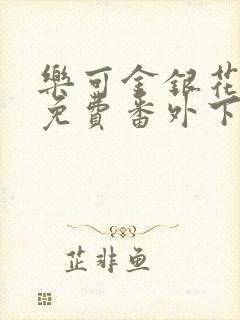 樂可金銀花
免費番外下
芷非鱼